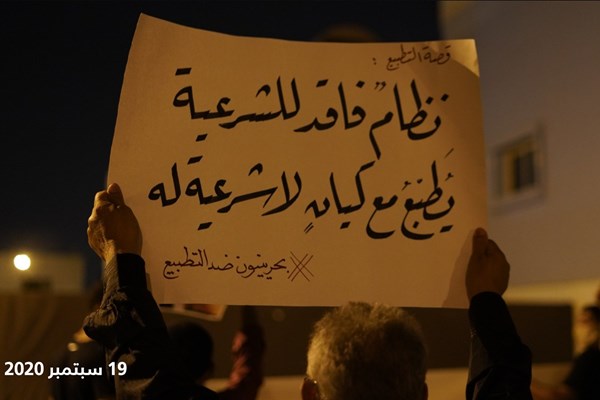 قصة التطبيع :
نظامٌ فاقد للشرعية
يُطَبّعُ مع كيانٍ لا شرعية له
بحرينيون ضد التطبيع
19 سبتمبر 2020